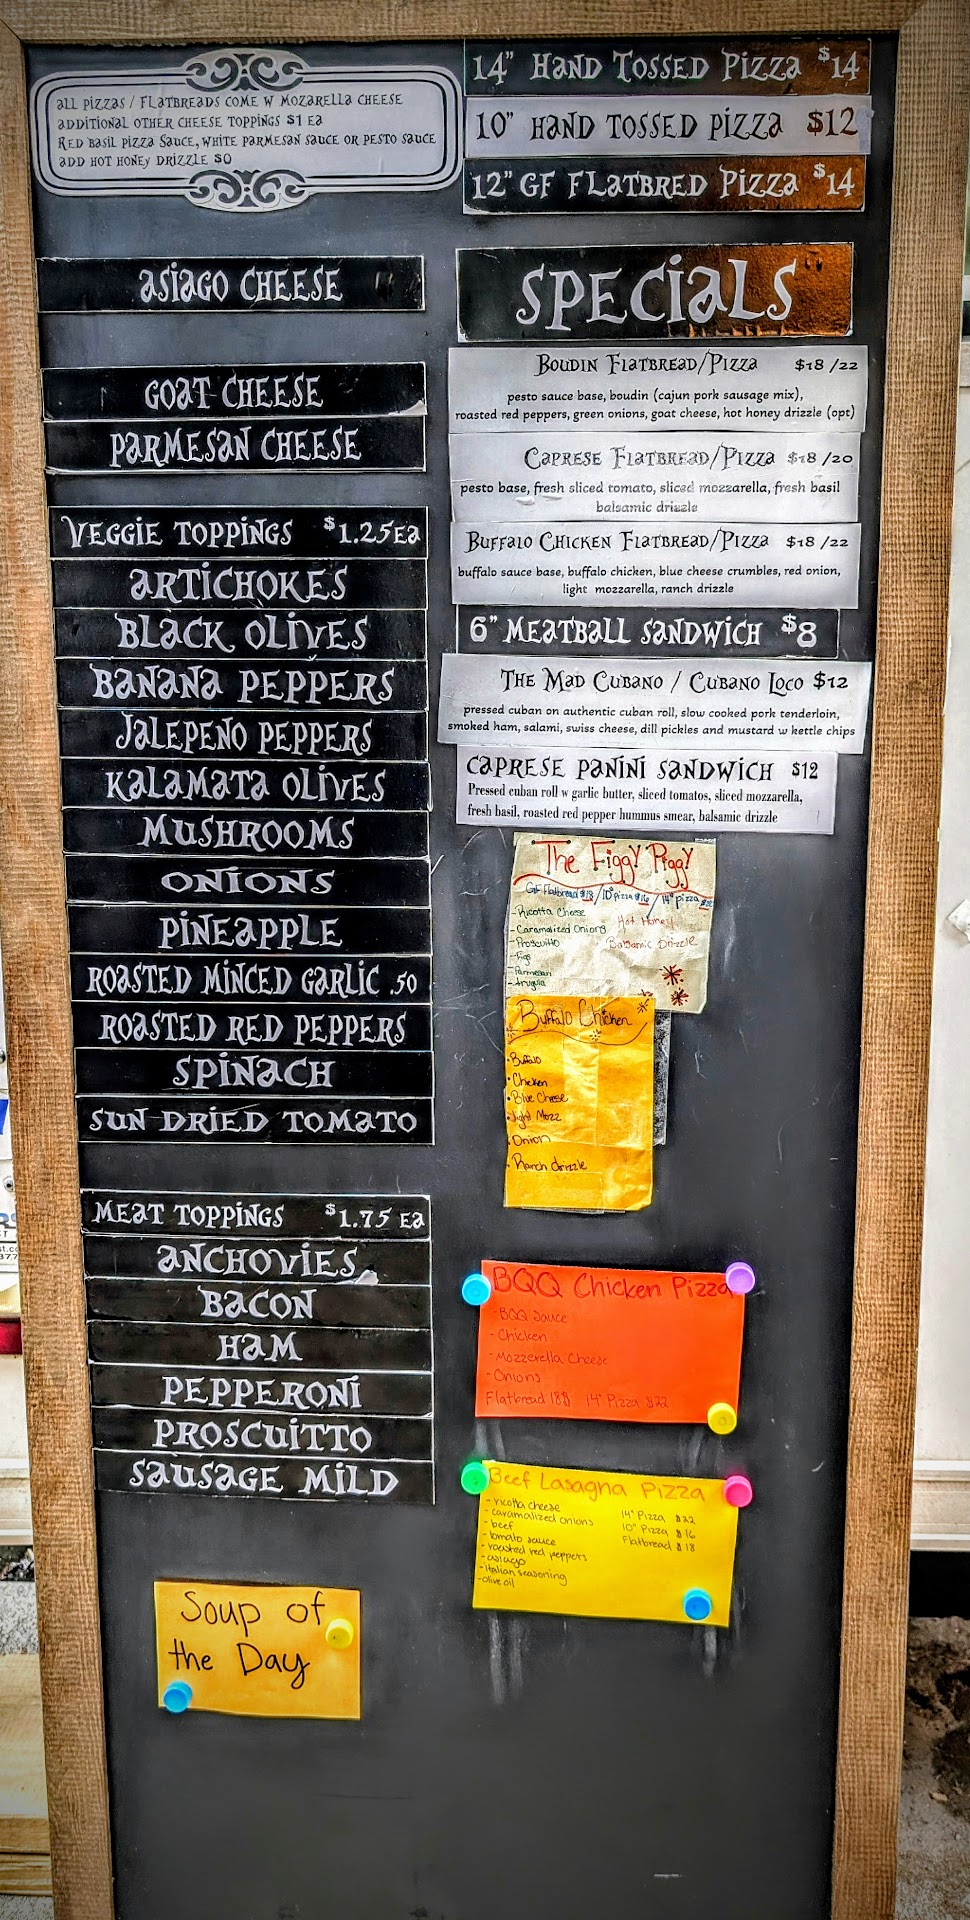 all pizzas / Flatbreads come w mozarella cheese
additional other cheese toppings $1 ea
Red basil pizza sauce, white parmesan sauce or pesto sauce
add hot honey drizzle $0
Asiago Cheese
Goat Cheese
Parmesan Cheese
Veggie Toppings $1.25ea
Artichokes
Black Olives
Banana Peppers
Jalepeno Peppers
Kalamata Olives
Mushrooms
Onions
Pineapple
Roasted Minced Garlic .50
Roasted Red Peppers
Spinach
Sun Dried Tomato
Meat Toppings $1.75 ea
Anchovies
Bacon
Ham
Pepperoni
Proscuitto
Sausage Mild
Soup of
the Day
14" Hand Tossed Pizza $14
10" Hand Tossed Pizza $12
12" GF Flatbred Pizza $14
Specials
Boudin Flatbread/Pizza $18 /22
pesto sauce base, boudin (cajun pork sausage mix),
roasted red peppers, green onions, goat cheese, hot honey drizzle (opt)
Caprese Flatbread/Pizza $18 /20
pesto base, fresh sliced tomato, sliced mozzarella, fresh basil
balsamic drizzle
Buffalo Chicken Flatbread/Pizza $18 /22
buffalo sauce base, buffalo chicken, blue cheese crumbles, red onion,
light mozzarella, ranch drizzle
6" Meatball Sandwich $8
The Mad Cubano / Cubano Loco $12
pressed cuban on authentic cuban roll, slow cooked pork tenderloin,
smoked ham, salami, swiss cheese, dill pickles and mustard w kettle chips
Caprese Panini Sandwich $12
Pressed cuban roll w garlic butter, sliced tomatos, sliced mozzarella,
fresh basil, roasted red pepper hummus smear, balsamic drizzle
The Figgy Piggy
GF Flatbread $18 / 10" pizza $16 / 14" pizza
- Ricotta Cheese
- Caramalized Onions
- Proscuitto
- Figs
- Parmesan
- Arugula
Hot Honey
Balsamic Drizzle
Buffalo Chicken
• Buffalo
• Chicken
• Blue Cheese
• light Mozz
• Onion
• Ranch drizzle
BQQ Chicken Pizza
- BQQ Sauce
- Chicken
- Mozzerella Cheese
- Onions
Flatbread 18$ 14" Pizza $22
Beef Lasagna Pizza
- ricotta cheese
- caramalized onions
- beef
- tomato sauce
- roasted red peppers
- asiago
- italian seasoning
- olive oil
14" Pizza $22
10" Pizza $16
Flatbread $18